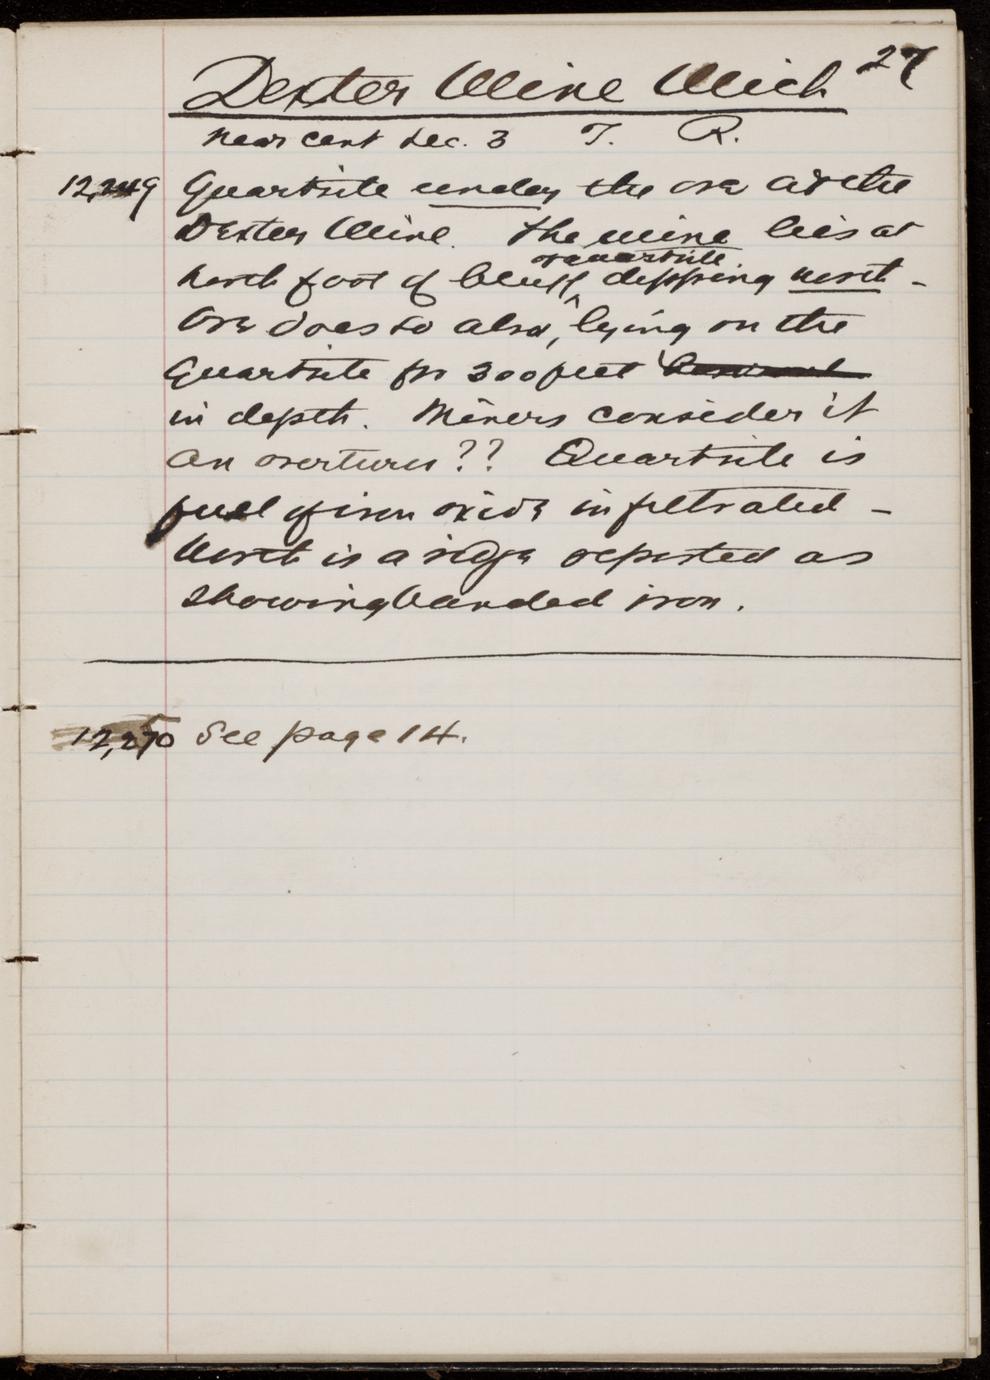 27
Dexter Mine Mich
near cent Sec. 3 T. R.
12,249 Quartzite under the ore at the
Dexter Mine. The mine lies at
of quartzite
north foot of bluff ^ dipping north -
Ore does so also, lying on the
Quartzite for 300 feet
in depth. Miners consider it
an overturn?? Quartzite is
full of iron oxide infiltrated -
North is a ridge reported as
showing banded iron.
12,250 See page 14.